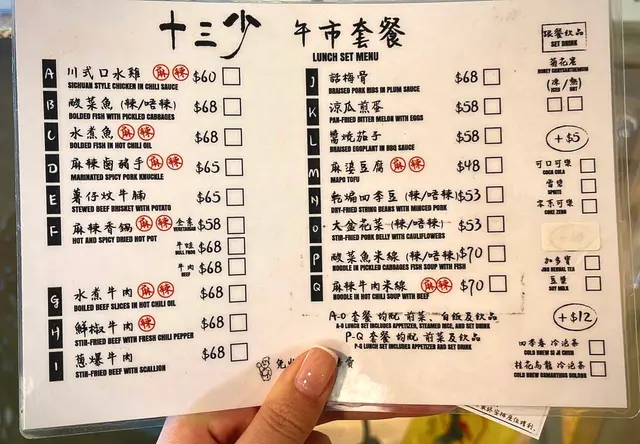 十三少 午市套餐
LUNCH SET MENU
A 川式口水雞 麻 辣 $60
SICHUAN STYLE CHICKEN IN CHILI SAUCE
B 酸菜魚 (辣/唔辣) $68
BOLDED FISH WITH PICKLED CABBAGES
C 水煮魚 麻 辣 $68
BOLDED FISH IN HOT CHILI OIL
D 麻辣鹵豬手 麻 辣 $65
MARINATED SPICY PORK KNUCKLE
E 薯仔炆牛腩 $65
STEWED BEEF BRISKET WITH POTATO
F 麻辣香鍋 麻 辣 全素 $58
HOT AND SPICY DRIED HOT POT VEGETARIAN
牛蛙 $68
BULL FROG
牛肉 $68
BEEF
G 水煮牛肉 麻 辣 $68
BOILED BEEF SLICES IN HOT CHILI OIL
H 鮮椒牛肉 辣 $68
STIR-FRIED BEEF WITH FRESH CHILI PEPPER
I 蔥爆牛肉 $68
STIR-FRIED BEEF WITH SCALLION
J 話梅骨 $68
BRAISED PORK RIBS IN PLUM SAUCE
K 涼瓜煎蛋 $58
PAN-FRIED BITTER MELON WITH EGGS
L 醬燒茄子 $58
BRAISED EGGPLANT IN BBQ SAUCE
M 麻婆豆腐 麻 辣 $48
MAPO TOFU
N 乾煸四季豆 (辣/唔辣) $53
DRY-FRIED STRING BEANS WITH MINCED PORK
O 大盆花菜 (辣/唔辣) $53
STIR-FRIED PORK BELLY WITH CAULIFLOWERS
P 酸菜魚米線 (辣/唔辣) $70
NOODLE IN PICKLED CABBAGES FISH SOUP WITH FISH
Q 麻辣牛肉米線 麻 辣 $70
NOODLE IN HOT CHILI SOUP WITH BEEF
A-O 套餐 均配 前菜、白飯及飲品
A-O LUNCH SET INCLUDES APPETIZER, STEAMED RICE, AND SET DRINK
P-Q 套餐 均配 前菜及飲品
P-Q LUNCH SET INCLUDES APPETIZER AND SET DRINK
免收
費
跟餐飲品
SET DRINK
菊花蜜
HONEY CHRYSANTHEMUM
(凍/熱)
ICED HOT
+$5
可口可樂
COCA COLA
雪碧
SPRITE
零系可樂
COKE ZERO
加多寶
JDB HERBAL TEA
豆漿
SOY MILK
+$12
四季春 冷泡茶
COLD BREW SI JI CHUN
桂花烏龍 冷泡茶
COLD BREW OSMANTHUS OOLONG